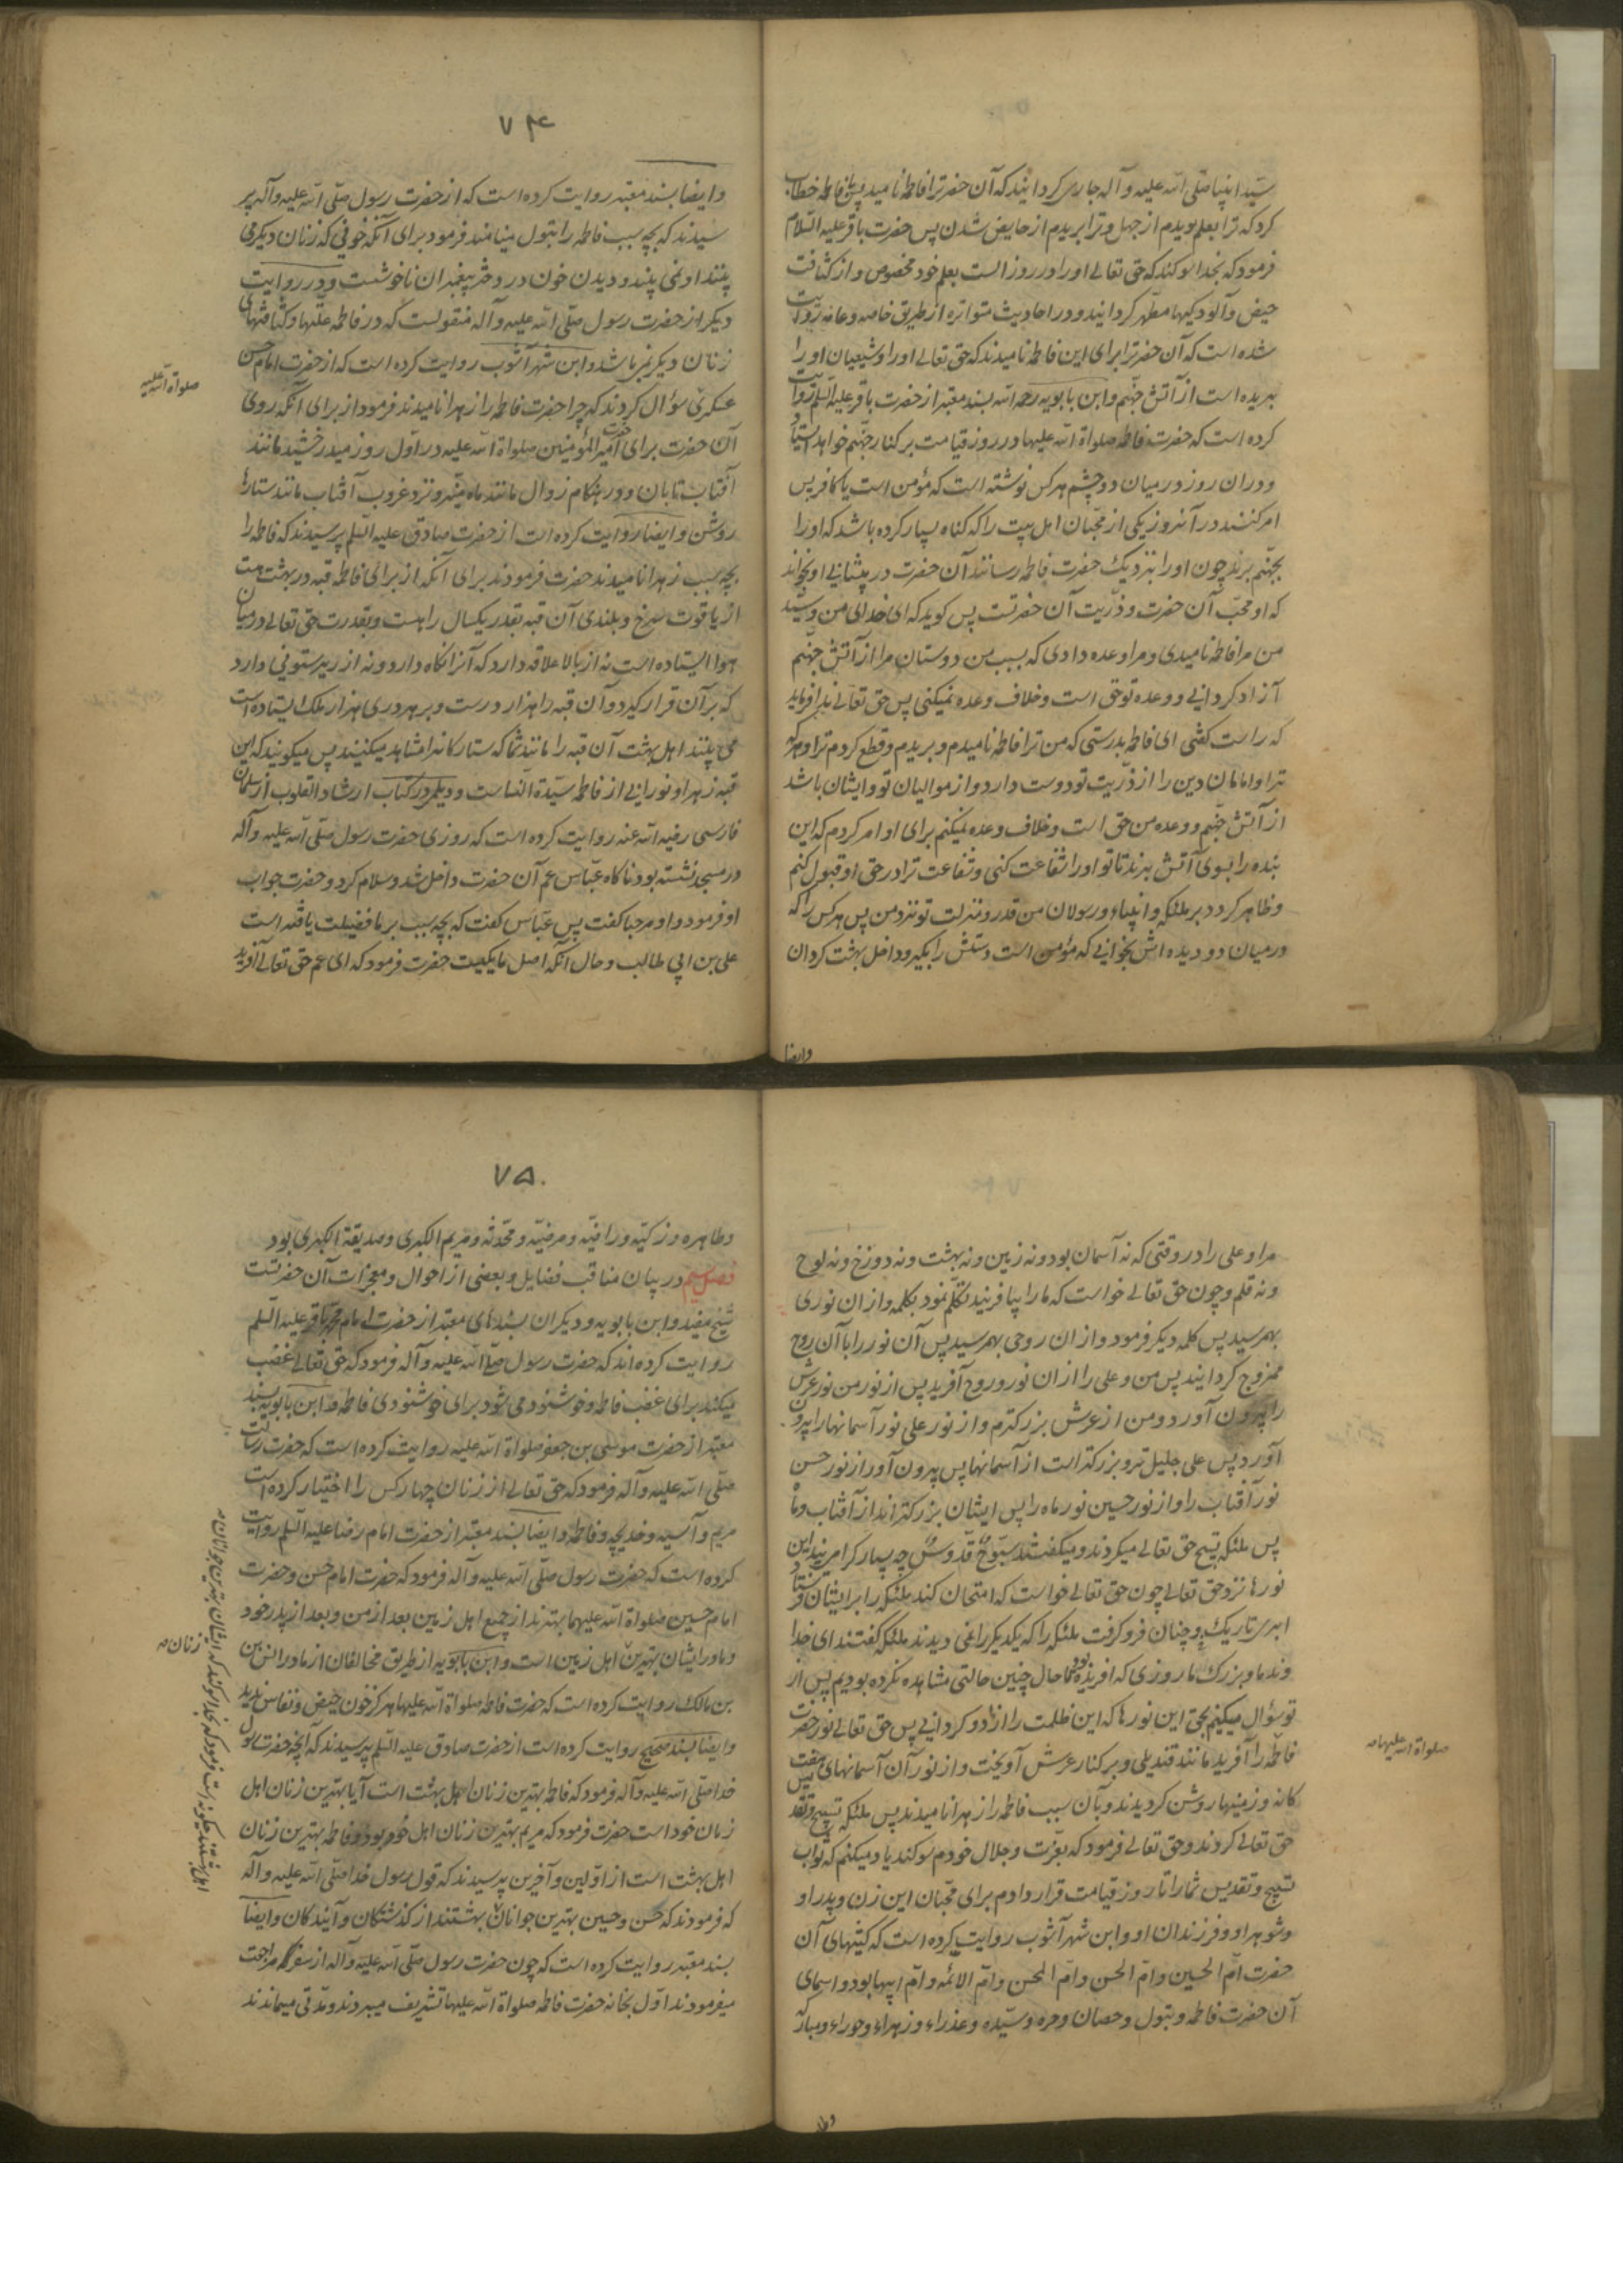 سید انبیا صلی الله علیه و آله جاری گردانید که آن حضرترا فاطمه نامید پس با فاطمه خطاب
کرد که ترا بعلم بریدم از جهل و ترا بریدم از حایض شدن پس حضرت باقر علیه السلام
فرمود که بخدا سوگند که حق تعالی او را در روز الست بعلم خود مخصوص و از کثافت
حیض و آلودگیها مطهر گردانید و در احادیث متواتره از طریق خاصه و عامه روایت
شده است که آن حضرترا برای این فاطمه نامیدند که حق تعالی او را و شیعیان او را
بریده است از آتش جهنم و ابن بابویه رحمه الله بسند معتبر از حضرت باقر علیه السلم روایت
کرده است که حضرت فاطمه صلواة الله علیها در روز قیامت بر کنار جهنم خواهد ایستاد
و در ان روز در میان دو چشم هر کس نوشته است که مؤمن است یا کافر پس
امر کنند در آنروز یکی از محبان اهل بیت را که گناه بسیار کرده باشد که او را
بجهنم برند چون او را بنزدیک حضرت فاطمه رسانند آن حضرت در پیشانی او بخواند
که او محب آن حضرت و ذریت آن حضرتست پس گوید که ای خدای من و سید
من مرا فاطمه نامیدی و مرا وعده دادی که بسبب من دوستان مرا از آتش جهنم
آزاد گردانی و وعده تو حق است و خلاف وعده نمیکنی پس حق تعالی ندا فرماید
که راست گفتی ای فاطمه بدرستی که من ترا فاطمه نامیدم و بریدم و قطع کردم ترا و هر که
ترا و امامان دین را از ذریت تو دوست دارد و از موالیان تو و ایشان باشد
از آتش جهنم و وعده من حق است و خلاف وعده نمیکنم برای او امر کردم که این
بنده را بسوی آتش برند تا تو او را شفاعت کنی و شفاعت ترا در حق او قبول کنم
و ظاهر گردد بر ملئکه و انبیاء و رسولان من قدر و منزلت تو نزد من پس هر کس را که
در میان دو دیده اش بخوانی که مؤمن است دستش را بگیر و داخل بهشت گردان
وایضا
۷۴
و ایضا بسند معتبر روایت کرده است که از حضرت رسول صلی الله علیه و آله پر
سیدند که بچه سبب فاطمه را بتول مینامند فرمود برای آنکه خونی که زنان دیگر می
بینند او نمی بیند و دیدن خون در دختر پیغمبران ناخوشست و در روایت
دیگر از حضرت رسول صلی الله علیه و آله منقولست که در فاطمه علتها و کثافتهای
زنان دیگر نمی باشد و ابن شهر آشوب روایت کرده است که از حضرت امام حسن
عسکری سؤال کردند که چرا حضرت فاطمه را زهرا نامیدند فرمود از برای آنکه روی
صلواة الله علیه
آن حضرت برای حضرت امیر المؤمنین صلواة الله علیه در اول روز میدرخشید مانند
آفتاب تابان و در هنگام زوال مانند ماه منیر و نزد غروب آفتاب مانند ستارهٔ
روشن و ایضا روایت کرده است از حضرت صادق علیه السلم پرسیدند که فاطمه را
بچه سبب زهرا نامیدند حضرت فرمودند برای آنکه از برای فاطمه قبه در بهشت هست
از یاقوت سرخ و بلندی آن قبه بقدر یکسال راهست و بقدرت حق تعالی در میان
هوا ایستاده است نه از بالا علاقه دارد که آنرا نگاه دارد و نه از زیر ستونی دارد
که بر آن قرار گیرد و آن قبه را هزار درست و بر هر دری هزار ملک ایستاده است
می بینند اهل بهشت آن قبه را مانند شما که ستارگانرا مشاهده میکنید پس میگویند که این
قبه زهرا و نورانی از فاطمه سیدة النساست و دیلمی در کتاب ارشاد القلوب از سلمان
فارسی رضی الله عنه روایت کرده است که روزی حضرت رسول صلی الله علیه و آله
در مسجد نشسته بود ناگاه عباس عم آن حضرت داخل شد و سلام کرد و حضرت جواب
او فرمود و او مرحبا گفت پس عباس گفت که بچه سبب بر ما فضیلت یافته است
علی بن ابی طالب و حال آنکه اصل ما یکیست حضرت فرمود که ای عم حق تعالی آفرید
مرا و علی را در وقتی که نه آسمان بود و نه زمین و نه بهشت و نه دوزخ و نه لوح
و نه قلم و چون حق تعالی خواست که ما را بیافریند تکلم نمود بکلمه و از ان نوری
بهم رسید پس کلمه دیگر فرمود و از ان روحی بهم رسید پس آن نور را با آن روح
ممزوج گردانید پس من و علی را از ان نور و روح آفرید پس از نور من نور عرش
را بیرون آورد و من از عرش بزرگترم و از نور علی نور آسمانها را بیرون
آورد پس علی جلیل تر و بزرگتر است از آسمانها پس بیرون آورد از نور حسن
نور آفتاب را و از نور حسین نور ماه را پس ایشان بزرگترند از آفتاب و ماه
پس ملئکه تسبیح حق تعالی میکردند و میگفتند سبوح قدوس چه بسیار گرامیند این
نورها نزد حق تعالی چون حق تعالی خواست که امتحان کند ملئکه را بر ایشان فرستاد
ابری تاریک و چنان فرو گرفت ملئکه را که یکدیگر را نمی دیدند ملئکه گفتند ای خدا
وند ما و بزرگ ما روزی که آفریده بودی ما حال چنین حالتی مشاهده نکرده بودیم پس از
تو سؤال میکنیم بحق این نورها که این ظلمت را از ما دور گردانی پس حق تعالی نور حضرت
فاطمه را آفرید مانند قندیلی و بر کنار عرش آویخت و از نور آن آسمانهای هفت
صلواة الله علیها
گانه و زمینها روشن گردیدند و بآن سبب فاطمه را زهرا نامیدند پس ملئکه تسبیح و تقدیس
حق تعالی کردند و حق تعالی فرمود که بعزت و جلال خودم سوگند یاد میکنم که ثواب
تسبیح و تقدیس شما را تا روز قیامت قرار دادم برای محبان این زن و پدر او
و شوهر او و فرزندان او و ابن شهر آشوب روایت کرده است که کنیتهای آن
حضرت ام الحسین و ام الحسن و ام المحسن و ام الائمه و ام ابیها بود و اسمای
آن حضرت فاطمه و بتول و حصان و حره و سیده و عذراء و زهراء و حوراء و مبارکه
وطا
۷۵
و طاهره و زکیه و راضیه و مرضیه و محدثه و مریم الکبری و صدیقة الکبری بود
فصل سیم در بیان مناقب فضایل و بعضی از احوال و معجزات آن حضرتست
شیخ مفید و ابن بابویه و دیگران بسندهای معتبر از حضرت امام محمد باقر علیه السلم
روایت کرده اند که حضرت رسول صلی الله علیه و آله فرمود که حق تعالی غضب
میکند برای غضب فاطمه و خوشنود می شود برای خوشنودی فاطمه و ابن بابویه بسند
معتبر از حضرت موسی بن جعفر صلواة الله علیه روایت کرده است که حضرت رسالت
صلی الله علیه و آله فرمود که حق تعالی از زنان چهار کس را اختیار کرده است
مریم و آسیه و خدیجه و فاطمه و ایضا بسند معتبر از حضرت امام رضا علیه السلم روایت
کرده است که حضرت رسول صلی الله علیه و آله فرمود که حضرت امام حسن و حضرت
امام حسین صلواة الله علیهما بهترند از جمیع اهل زمین بعد از من و بعد از پدر خود
و مادر ایشان بهترین اهل زمین است و ابن بابویه از طریق مخالفان از مادر انس بن
زنان
بن مالک روایت کرده است که حضرت فاطمه صلواة الله علیها هرگز خون حیض و نفاس ندید
و ایضا بسند صحیح روایت کرده است از حضرت صادق علیه السلم پرسیدند که آنچه حضرت رسول
خدا صلی الله علیه و آله فرمود که فاطمه بهترین زنان اهل بهشت است آیا بهترین زنان اهل
زمان خود است حضرت فرمود که مریم بهترین زنان اهل خود بود و فاطمه بهترین زنان
اهل بهشت است از اولین و آخرین پرسیدند که قول رسول خدا صلی الله علیه و آله
که فرمودند که حسن و حسین بهترین جوانان بهشتند از گذشتگان و آیندگان و ایضا
اهل بهشتند چگونه است فرمود که بخدا سوگند که ایشان بهترین جوانان
بسند معتبر روایت کرده است که چون حضرت رسول صلی الله علیه و آله از سفر مراجعت
میفرمودند اول بخانه حضرت فاطمه صلواة الله علیها تشریف میبردند و مدتی میماندند